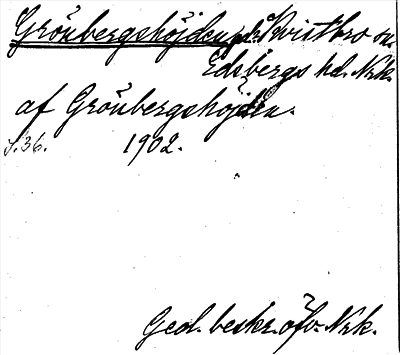 Grönbergshöjden, Kvistbro sn.
Edsbergs hd. Nrk.
af Grönbergshöjden.
s. 36. 1902.
Geol. beskr. öfv. Nrk.